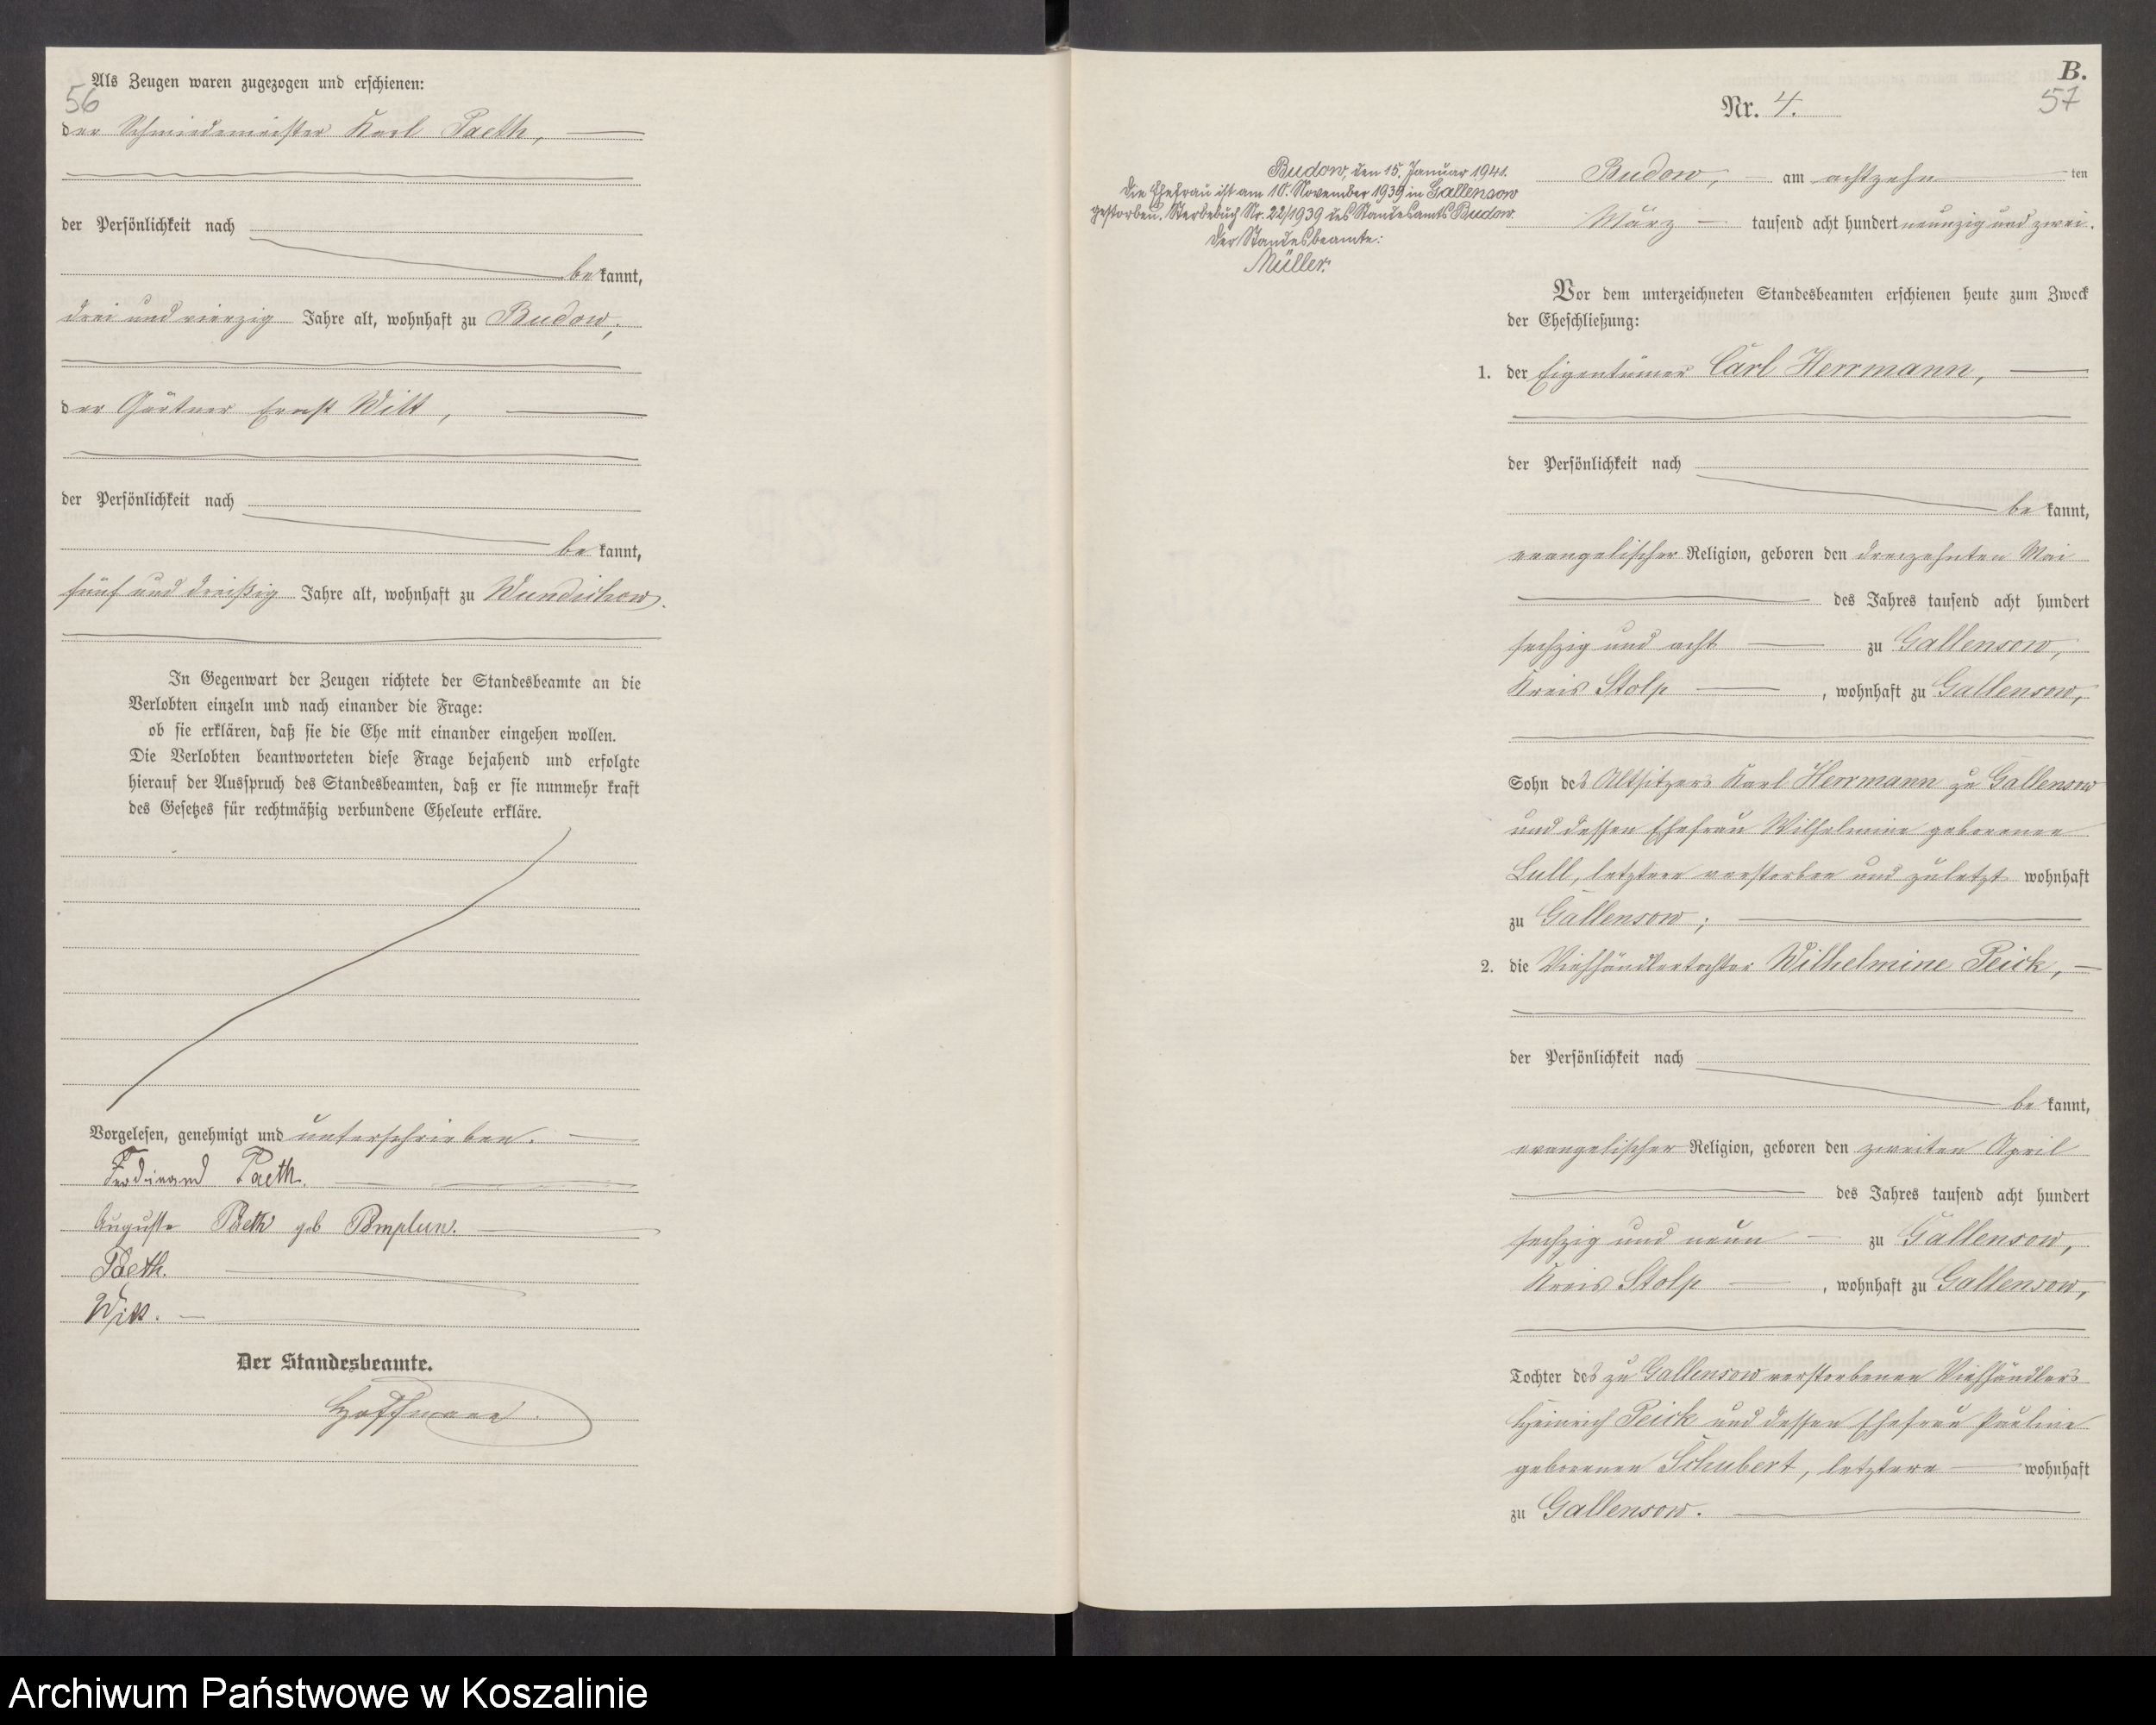 Als Zeugen waren zugezogen und erschienen:
56
der Schmiedemeister Karl Paeth,
der Persönlichkeit nach
be kannt,
drei und vierzig Jahre alt, wohnhaft zu Budow;
der Gärtner Ernst Witt,
der Persönlichkeit nach
be kannt,
fünf und dreißig Jahre alt, wohnhaft zu Wundichow.
In Gegenwart der Zeugen richtete der Standesbeamte an die
Verlobten einzeln und nach einander die Frage:
ob sie erklären, daß sie die Ehe mit einander eingehen wollen.
Die Verlobten beantworteten diese Frage bejahend und erfolgte
hierauf der Ausspruch des Standesbeamten, daß er sie nunmehr kraft
des Gesetzes für rechtmäßig verbundene Eheleute erkläre.
Vorgelesen, genehmigt und unterschrieben.
Ferdinand Paeth.
Auguste Paeth geb Pomplun.
Paeth.
Witt.
Der Standesbeamte.
Hoffmann.
B.
57
Nr. 4.
Budow, den 15. Januar 1941.
Die Ehefrau ist am 10. November 1939 in Gallensow
gestorben. Sterbebuch Nr. 22/1939 des Standesamts Budow.
Der Standesbeamte:
Müller.
Budow, am achtzehn ten
März tausend acht hundert neunzig und zwei.
Vor dem unterzeichneten Standesbeamten erschienen heute zum Zweck
der Eheschließung:
1. der Eigentümer Carl Herrmann,
der Persönlichkeit nach
be kannt,
evangelischer Religion, geboren den dreizehnten Mai
des Jahres tausend acht hundert
sechzig und acht zu Gallensow,
Kreis Stolp, wohnhaft zu Gallensow,
Sohn des Altsitzers Karl Herrmann zu Gallensow
und dessen Ehefrau Wilhelmine geborenen
Lull, letztere verstorben und zuletzt wohnhaft
zu Gallensow;
2. die Viehhändlertochter Wilhelmine Peick,
der Persönlichkeit nach
be kannt,
evangelischer Religion, geboren den zweiten April
des Jahres tausend acht hundert
sechzig und neun zu Gallensow,
Kreis Stolp, wohnhaft zu Gallensow,
Tochter des zu Gallensow verstorbenen Viehhändlers
Heinrich Peick und dessen Ehefrau Pauline
geborenen Schubert, letztere wohnhaft
zu Gallensow.
Archiwum Państwowe w Koszalinie